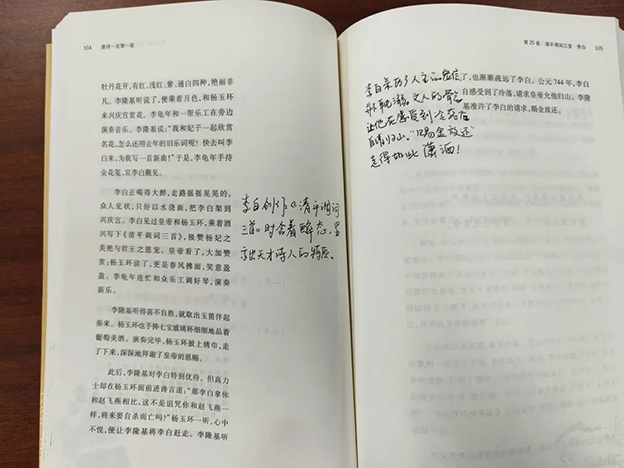 104 唐诗一百零一夜
牡丹花开，有红、浅红、紫、通白四种，艳丽非
凡。李隆基听说了，便乘着月色，和杨玉环
来兴庆宫赏花。李龟年和一帮乐工在旁边
演奏音乐。李隆基说：“我和妃子一起欣赏
名花，怎么还用去年的旧乐词呢！快去叫李
白来，为我写一首新曲！”于是，李龟年手持
金花笺，宣李白觐见。
李白正喝得大醉，走路摇摇晃晃的。
众人见状，只好以水浇面，把李白架到
兴庆宫。李白见过皇帝和杨玉环，乘着酒
兴写下《清平调词三首》，极赞杨妃之
美艳与君王之恩宠。皇帝看了，大加赞
赏；杨玉环读了，更是春风拂面，笑意盈
盈。李龟年连忙和众乐工调好琴，演奏
新乐。
李隆基听得喜不自胜，就取出玉笛伴起
奏来。杨玉环也手捧七宝玻璃杯细细地品着
葡萄美酒。演奏完毕，杨玉环披上绣巾，走
了下来，深深地拜谢了皇帝的恩赐。
此后，李隆基对李白特别优待。但高力
士却在杨玉环面前进谗言道：“那李白拿你
和赵飞燕相比，这不是诅咒你和赵飞燕一
样，将来要自杀而亡吗？”杨玉环一听，心中
不悦，便让李隆基将李白赶走。李隆基听
李白创作《清平调词
三首》时含着醉态，呈
现出天才诗人的特质。
第 25 夜 清平调词三首 李白 105
了，也渐渐疏远了李白。公元 744 年，李白
自感受到了冷落，请求皇帝允他归山。李隆
基准许了李白的请求，赐金放还。
李白亲历了人主的恩信
文人的骨气
让他在感受到冷落后
自请归山。“赐金放还”
走得如此潇洒！